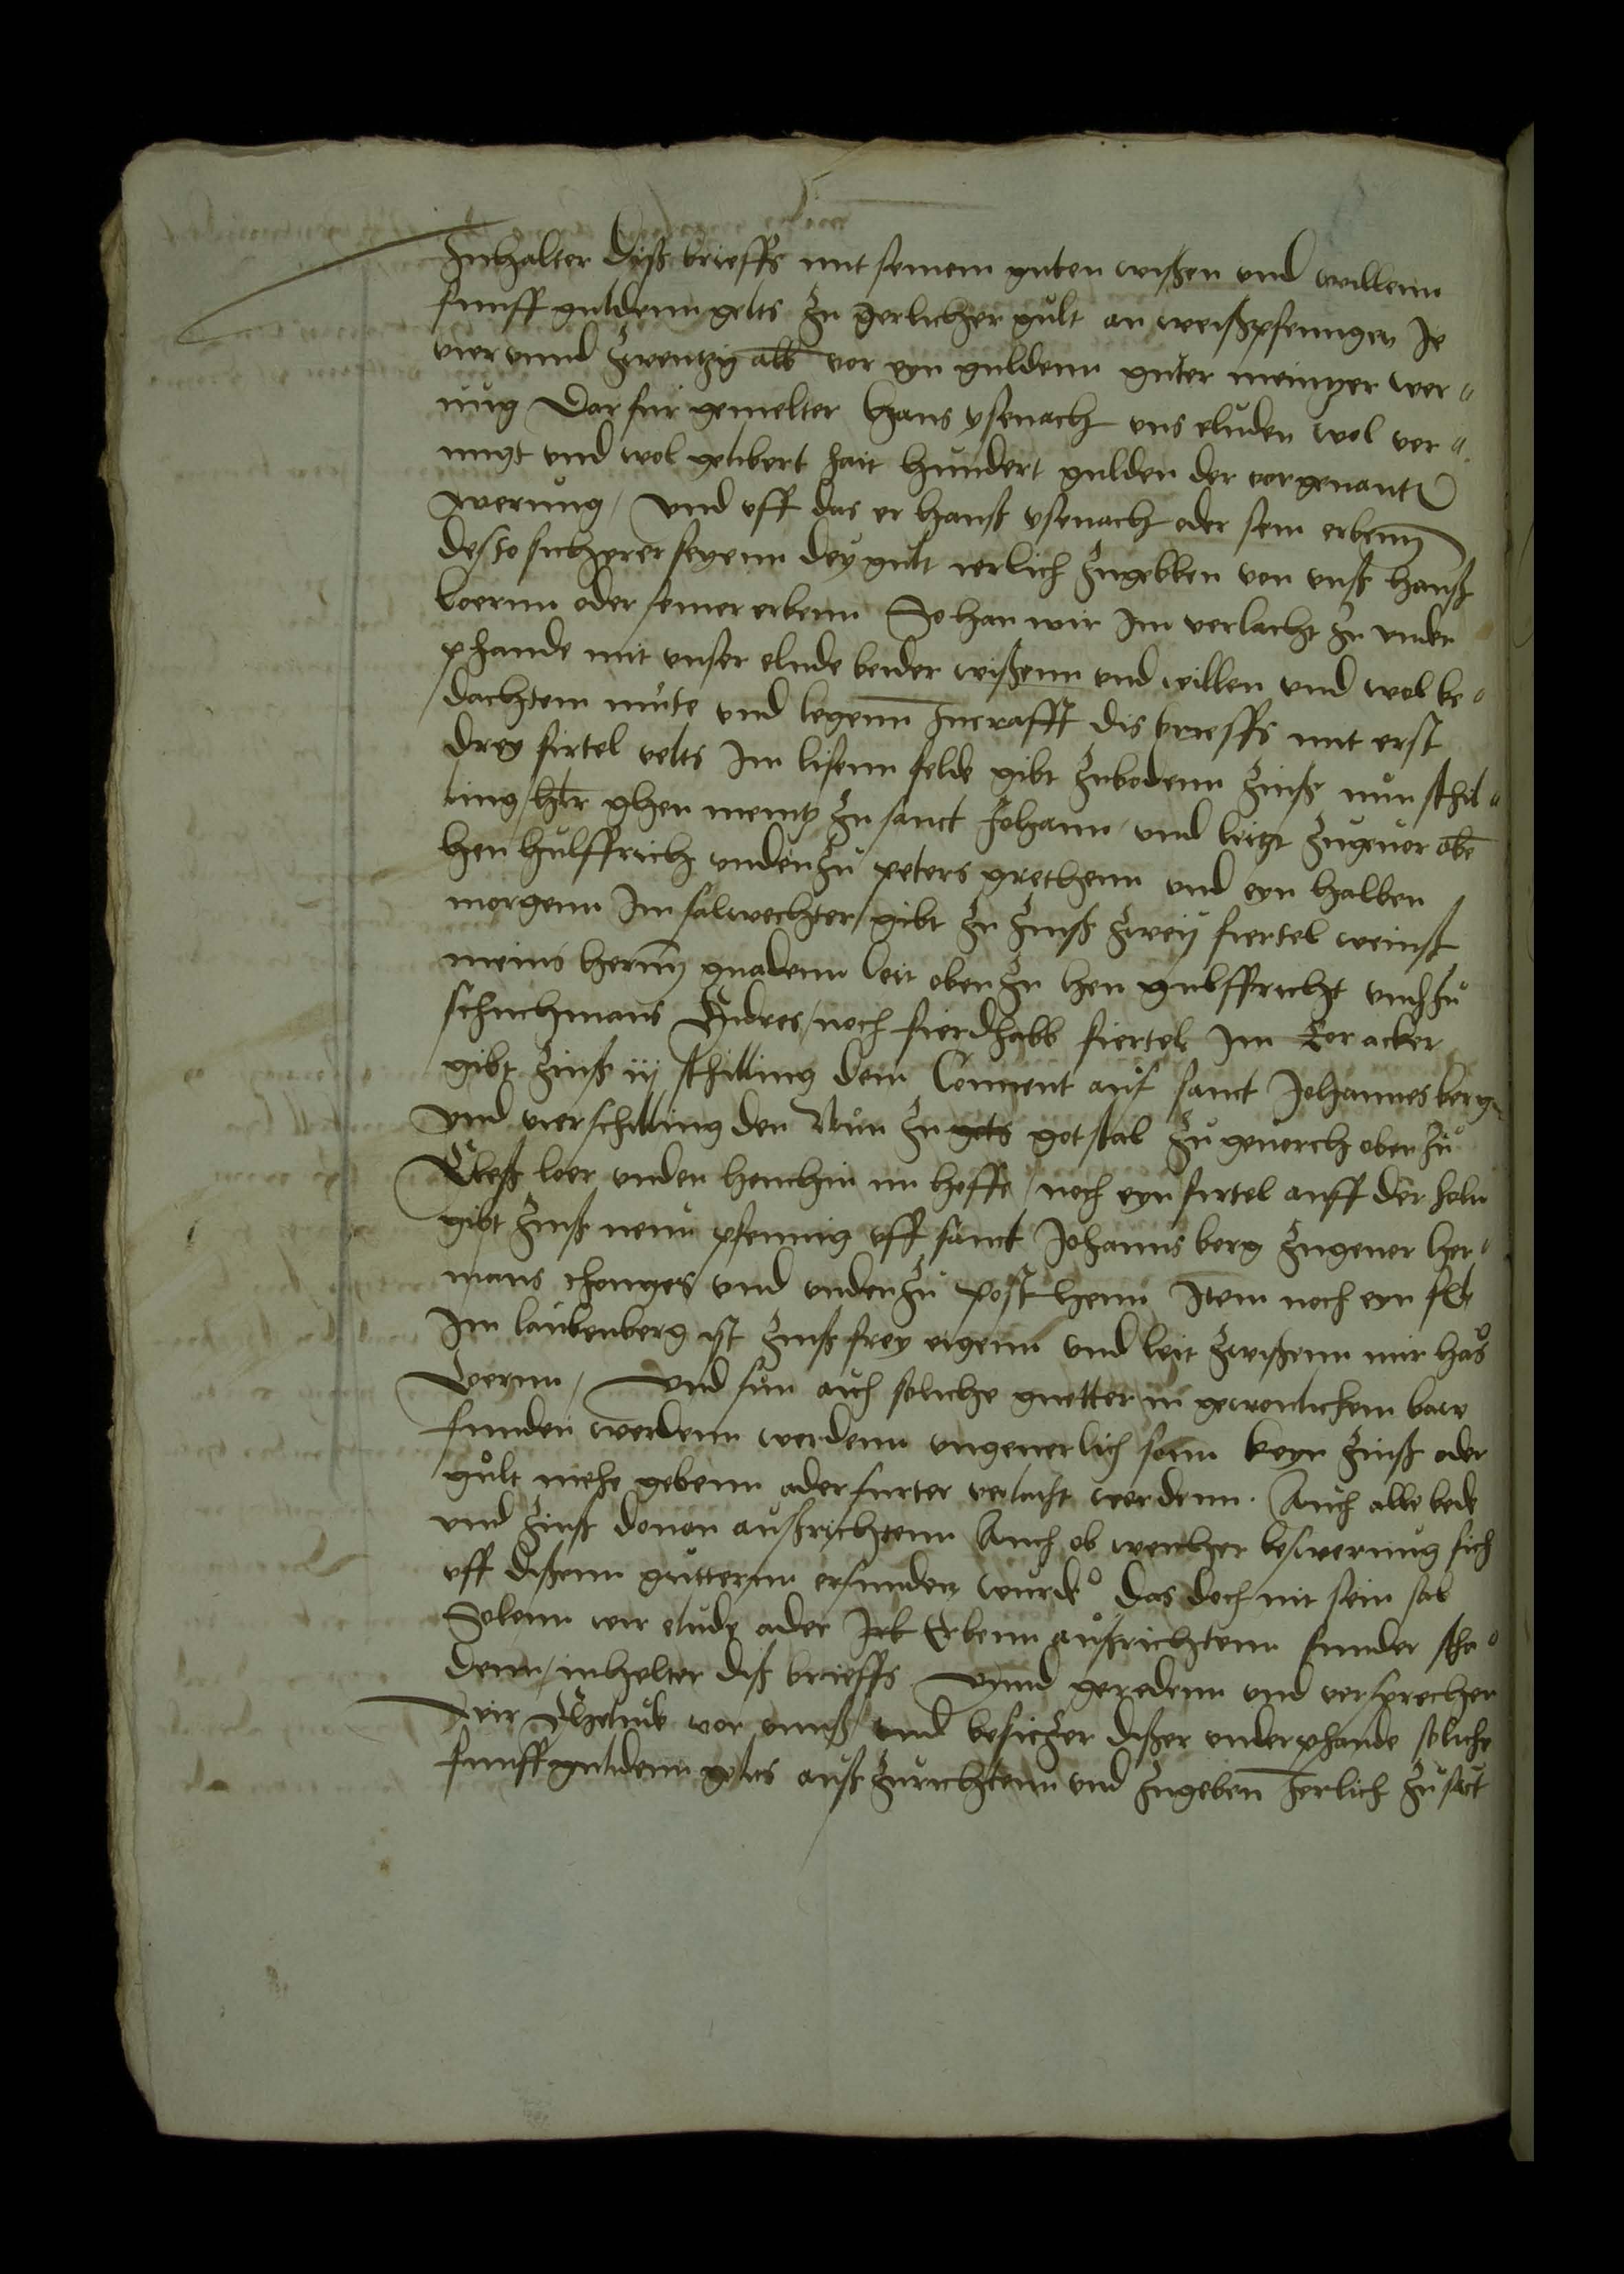 Inhalter diß brieffs mit seinem guten wißen und willenn
funff guldenn gelts zu Jerlicher gult an weißpfennigen Je
vier unnd zwentzig alb vor eyn guldenn guter meintzer wer„
ung Dar fur gemelter Hans ysenach uns eluden wol ver„
nugt und wol gelibert hait hundert gulden der vorgenanten
werung / und uff das er Hanß ysenach oder sein erbenn
desto sicherer seyenn dey gult ierlich zugebben von unß Hanß
Loernn oder seiner erbenn So han wir Im verlacht zu under
phande mit unser elude beider wißenn und willen und wol be„
dachtem mute und legenn Incrafft dis brieffs mit erst
drey firtel velts Im lisenn felde gibt zubodenn zinß nun schil„
ling hlr ghen mentz zu sanct Johann und leigt zugevor oben
hen hulffrich unden zu peters grethenn und eyn halben
morgenn Im salwechter / gibt zu zinß zweÿ fiertel weinß
meins hernn gnadenn leit oben zu hen gulffricht und zu
schuchmans Endres / noch fierdhalb fiertel Im Loracker
gibt zinß iij schilling dem Convent auf sanct Johannes berg
und vier schilling den Nun zu gots gotstal zu gevorch oben zu
Cleß loer unden henchin im hoffe / noch eyn firtel auff der heln
gibt zinß neun pfennig uff sanct Johanns berg zugevor her„
mans chonges und unden zu post henn Item noch eyn flk
Im laubenberg ist zinß frey eigenn und leit zwißenn mir Hans
Loernn / und sun auch soliche guetter in gewonlichem bawe
funden werdenn werdenn ungeverlich sonn keyn zinß oder
gult mehe gebenn ader furter verlacht werdenn. Auch alle bede
und zinß donon außrichtenn Auch ob welcher beswerung sich
uff dißenn guttern erfunden wurde das doch nit sein sal
Solenn wir elude ader Irk Erbenn außrichtenn sunder scha„
denn / inhelter diß brieffs Unnd geredenn und versprechen
wir Ehelude vor unnß und besiczer dißer underphande soliche
funff guldenn gelts auß zurichtenn und zugeben Jerlich zu sant